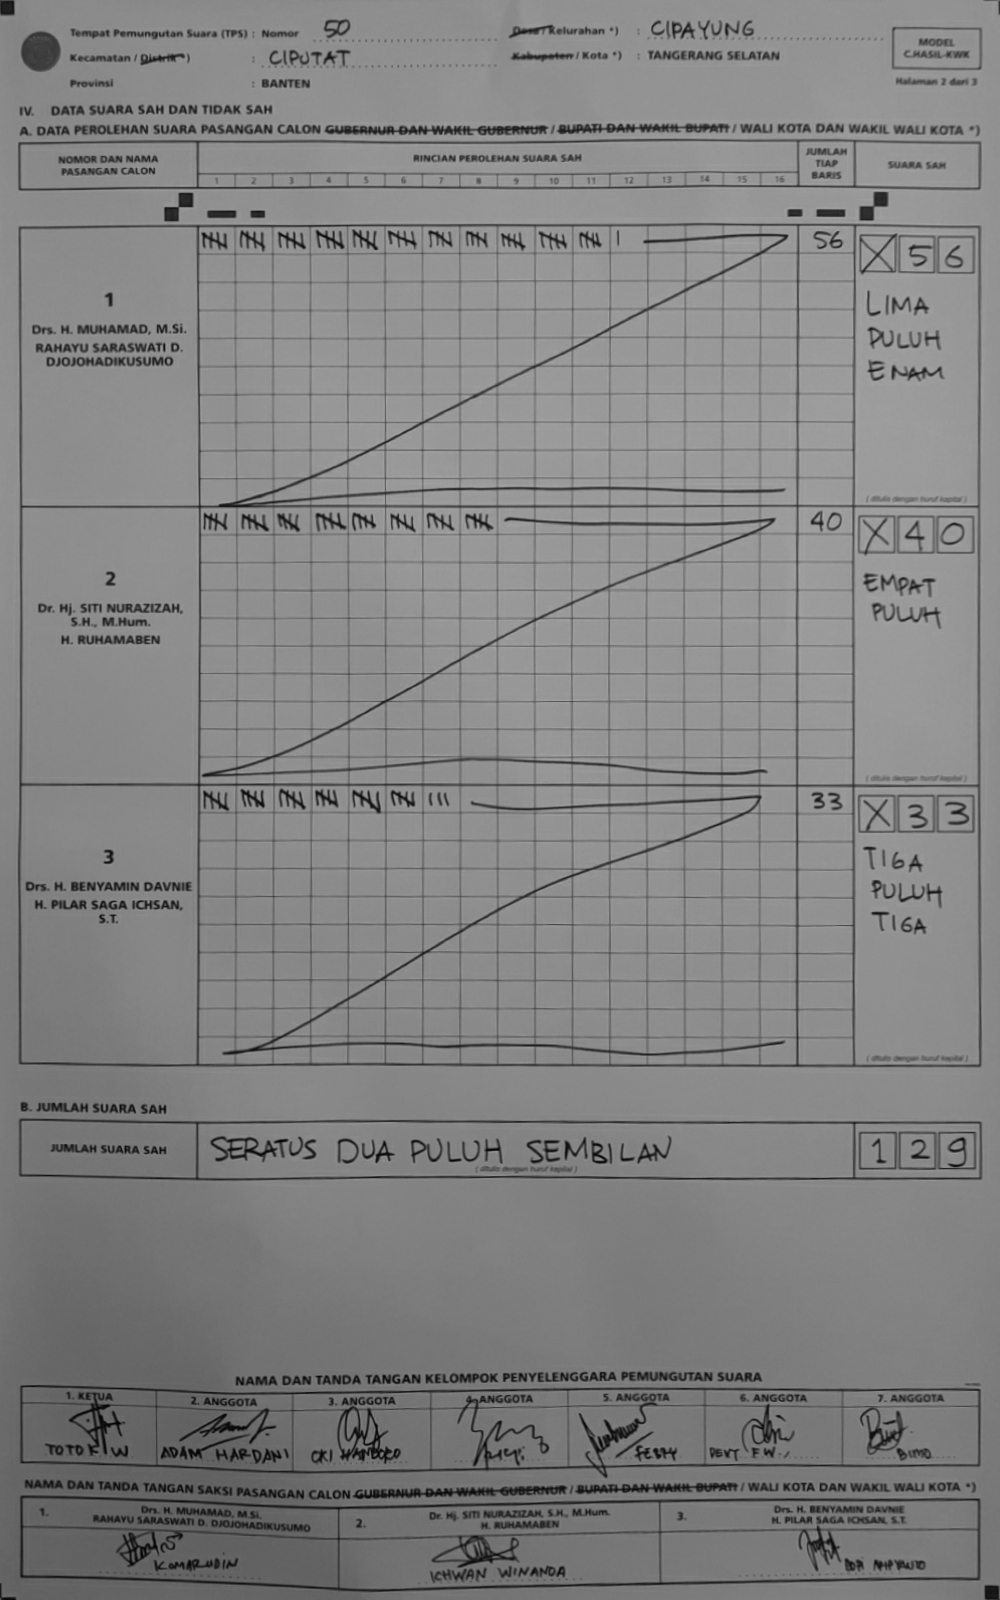 Tempat Pemungutan Suara (TPS) : Nomor 50 Desa / Kelurahan *) : CIPAYUNG
Kecamatan / Distrik *) : CIPUTAT Kabupaten / Kota *) : TANGERANG SELATAN
Provinsi : BANTEN
MODEL
C.HASIL-KWK
Halaman 2 dari 3
IV. DATA SUARA SAH DAN TIDAK SAH
A. DATA PEROLEHAN SUARA PASANGAN CALON GUBERNUR DAN WAKIL GUBERNUR / BUPATI DAN WAKIL BUPATI / WALI KOTA DAN WAKIL WALI KOTA *)
NOMOR DAN NAMA
PASANGAN CALON
RINCIAN PEROLEHAN SUARA SAH
1 2 3 4 5 6 7 8 9 10 11 12 13 14 15 16
JUMLAH
TIAP
BARIS
SUARA SAH
1
Drs. H. MUHAMAD, M.Si.
RAHAYU SARASWATI D.
DJOJOHADIKUSUMO
56
X 5 6
LIMA
PULUH
ENAM
( ditulis dengan huruf kapital )
2
Dr. Hj. SITI NURAZIZAH,
S.H., M.Hum.
H. RUHAMABEN
40
X 4 0
EMPAT
PULUH
( ditulis dengan huruf kapital )
3
Drs. H. BENYAMIN DAVNIE
H. PILAR SAGA ICHSAN,
S.T.
33
X 3 3
TIGA
PULUH
TIGA
( ditulis dengan huruf kapital )
B. JUMLAH SUARA SAH
JUMLAH SUARA SAH
SERATUS DUA PULUH SEMBILAN
( ditulis dengan huruf kapital )
1 2 9
NAMA DAN TANDA TANGAN KELOMPOK PENYELENGGARA PEMUNGUTAN SUARA
1. KETUA 2. ANGGOTA 3. ANGGOTA 4. ANGGOTA 5. ANGGOTA 6. ANGGOTA 7. ANGGOTA
TOTOK W ADAM HARDANI OKI HANDOKO FEBRY DEVY F.W. BIMO
NAMA DAN TANDA TANGAN SAKSI PASANGAN CALON GUBERNUR DAN WAKIL GUBERNUR / BUPATI DAN WAKIL BUPATI / WALI KOTA DAN WAKIL WALI KOTA *)
1. Drs. H. MUHAMAD, M.Si.
RAHAYU SARASWATI D. DJOJOHADIKUSUMO
KOMARUDIN
2. Dr. Hj. SITI NURAZIZAH, S.H., M.Hum.
H. RUHAMABEN
ICHWAN WINANDA
3. Drs. H. BENYAMIN DAVNIE
H. PILAR SAGA ICHSAN, S.T.